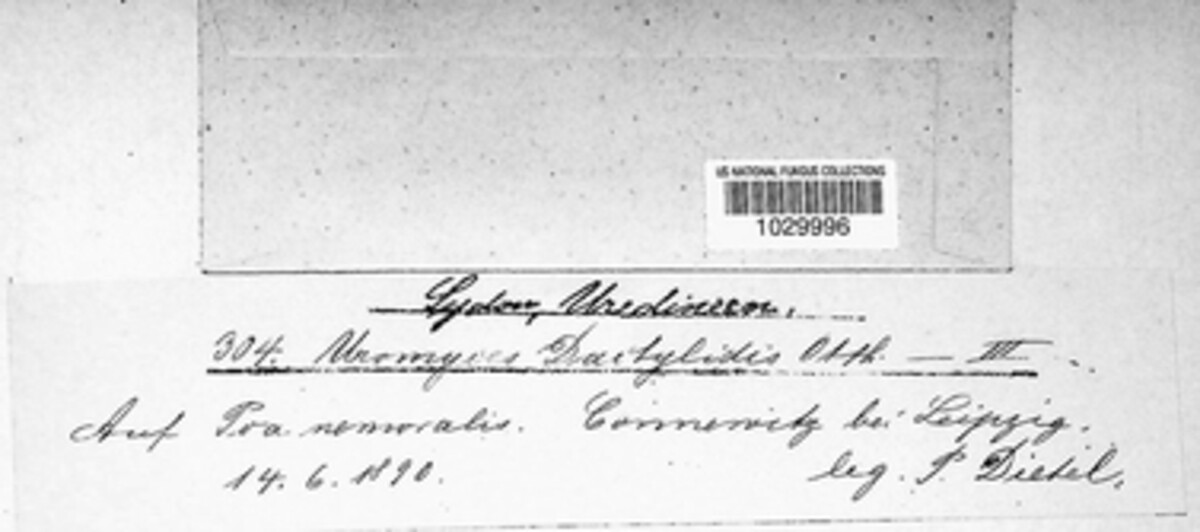 US NATIONAL FUNGUS COLLECTIONS
1029996
Sydow, Uredineen.
304. Uromyces Dactylidis Otth. — III
Auf Poa nemoralis. Connewitz bei Leipzig.
14. 6. 1890. leg. P. Dietel.